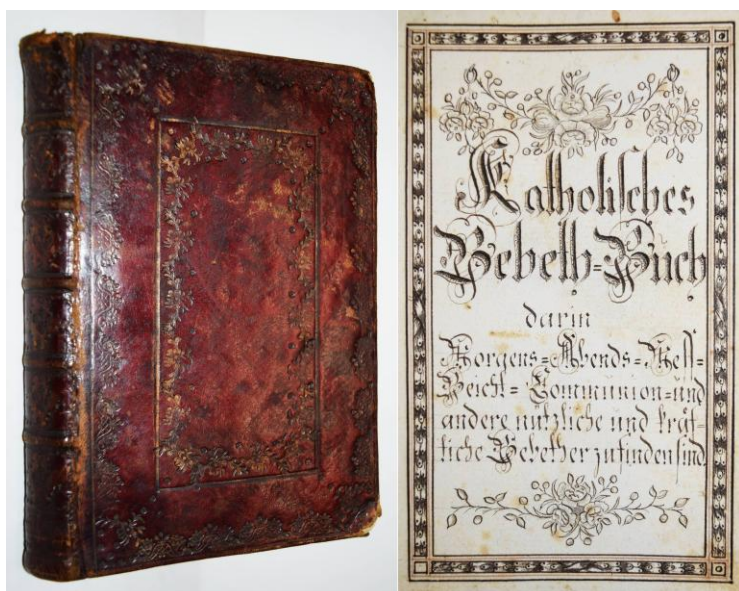 Katholisches
Gebeth=Buch
darin
Morgens=Abends=Meß=
Beicht=Communion=und
andere nützliche und kräf¬
tliche Gebether zufinden sind.